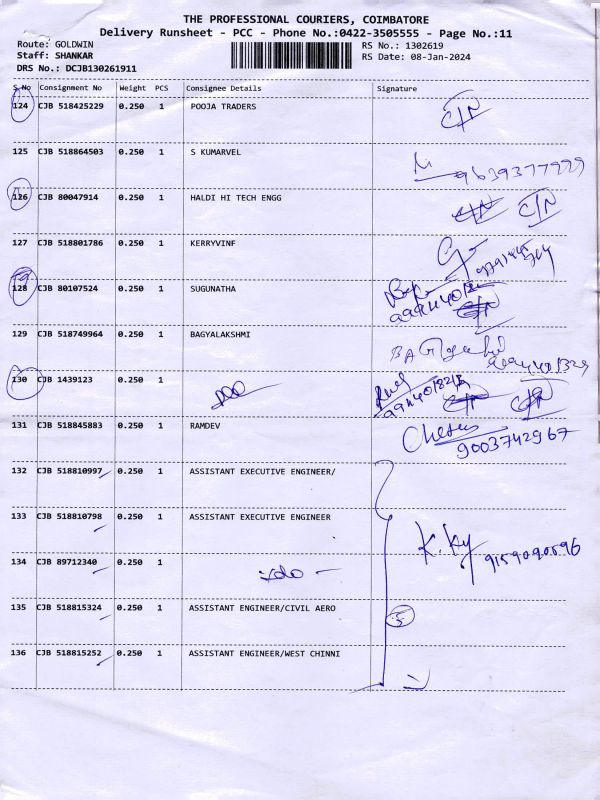 THE PROFESSIONAL COURIERS, COIMBATORE
Delivery Runsheet - PCC - Phone No.:0422-3505555 - Page No.:11
Route: GOLDWIN
Staff: SHANKAR
DRS No.: DCJB130261911
RS No.: 1302619
RS Date: 08-Jan-2024
S No Consignment No Weight PCS Consignee Details Signature
124 CJB 518425229 0.250 1 POOJA TRADERS C/N
125 CJB 518864503 0.250 1 S KUMARVEL
126 CJB 80047914 0.250 1 HALDI HI TECH ENGG C/N C/N
127 CJB 518801786 0.250 1 KERRYVINF
128 CJB 80107524 0.250 1 SUGUNATHA C/N
129 CJB 518749964 0.250 1 BAGYALAKSHMI
130 CJB 1439123 0.250 1 C/N C/N
131 CJB 518845883 0.250 1 RAMDEV
9003742967
132 CJB 518810997 0.250 1 ASSISTANT EXECUTIVE ENGINEER/
133 CJB 518810798 0.250 1 ASSISTANT EXECUTIVE ENGINEER
134 CJB 89712340 0.250 1 9159090596
135 CJB 518815324 0.250 1 ASSISTANT ENGINEER/CIVIL AERO 5
136 CJB 518815252 0.250 1 ASSISTANT ENGINEER/WEST CHINNI